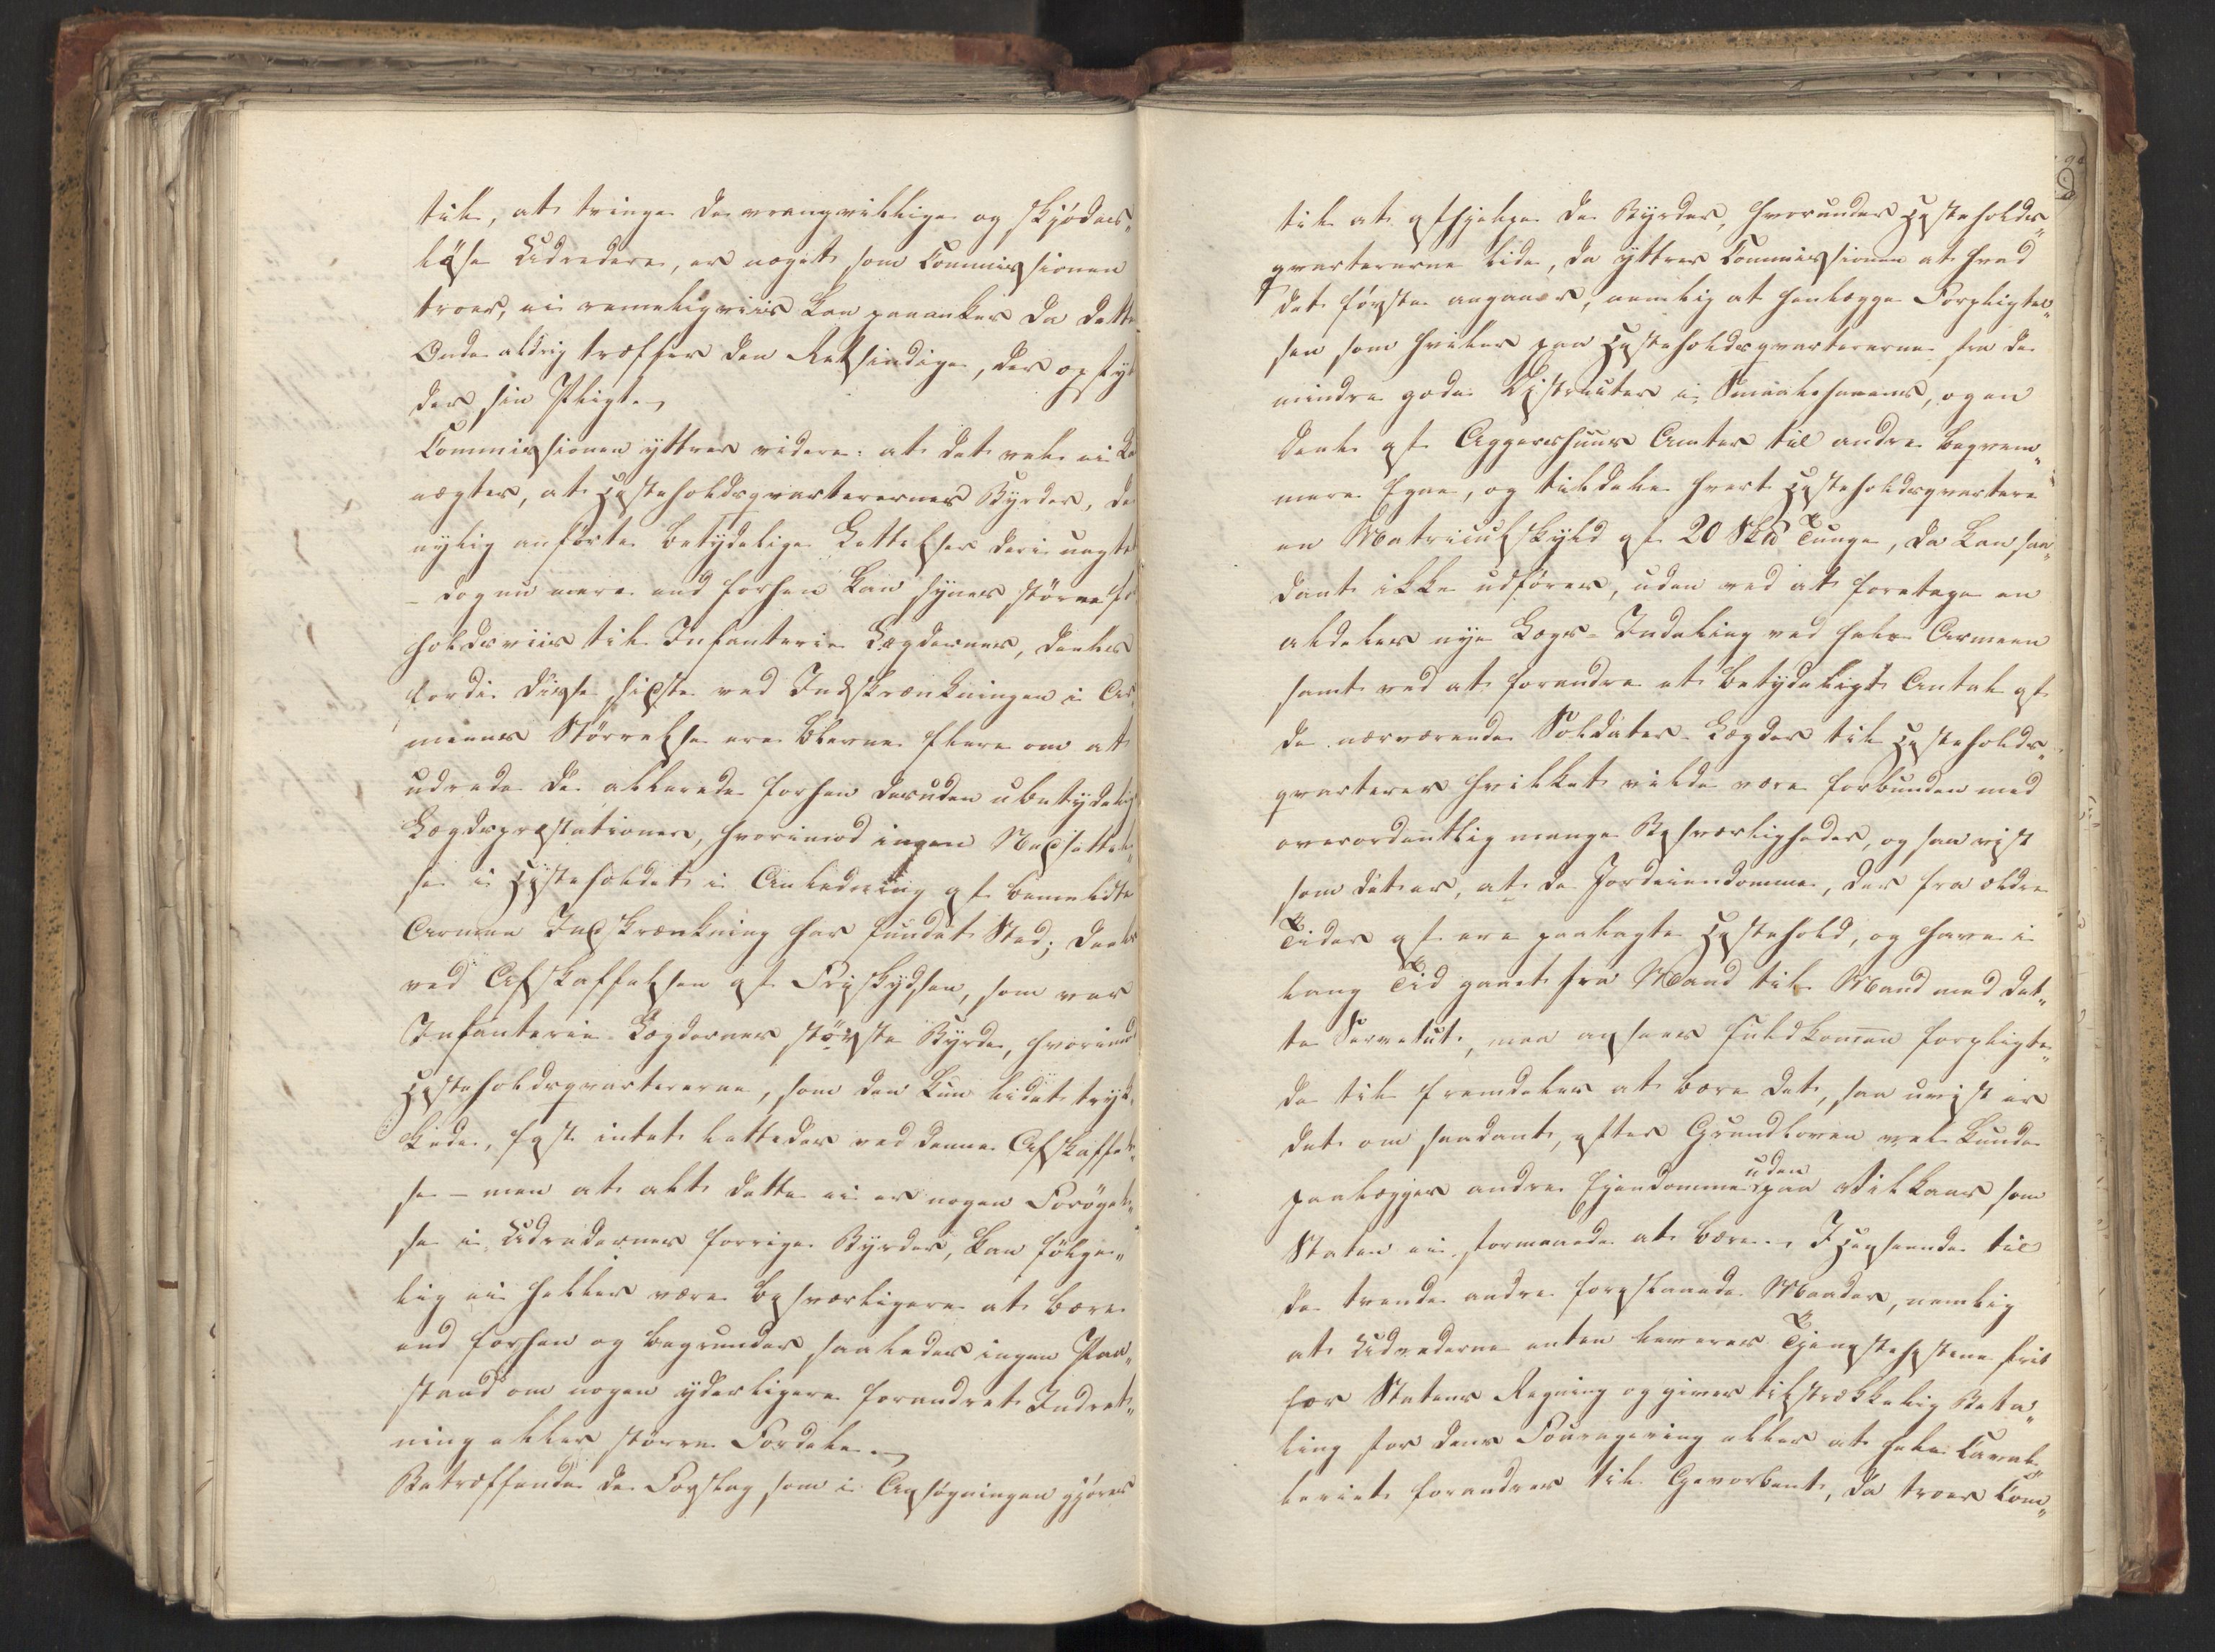 till, at tvinge de vrangvillige og skjödes„
löse Udredere, er noget som Commissionen
troer, ei rimeligviis kan paaankes da dette
Onde aldrig træffer den Retsindige, der opfyl
der sin Pligt.
Commissionen yttrer videre: at det vel ei be
nægtes, at Hesteholdsqvarterernes Byrder, de
nylig anförte betydelige Lettelser deri uagtet
– dog nu mere end forhen kan synes större for
holdsviis til Infanterie Lægdernes, deels
fordi disse sidste ved Indskrænkningen i Ar„
meens Störrelse ere blevne flere om at
udrede de allerede forhen desuden ubetydelig
Lægdspræstationer, hvorimod ingen Nedsættel„
se i Hesteholdet i Anledning af bemeldte
Armee Indskrænkning har fundet Sted; deels
ved Afskaffelsen af Friskydsen, som var
Infanterie Lægdernes störste Byrde, hvorimod
Hesteholdsqvartererne, som den kun lidet tryk„
kede, fast intet lettedes ved denne Afskaffel„
se – men at alt dette ei er nogen Forögel„
se i Udredernes forrige Byrder, kan fölge„
lig ei heller være besværligere at bære
end forhen og begrunder saaledes ingen Paa„
stand om nogen yderligere forandret Indret„
ning eller större Fordele.
Betræffende de Forslag som i Ansögningen gjöres
til at afhjelpe de Byrder, hvorunder Hesteholds„
qvartererne lide, da yttrer Commissionen at hvad
det første angaaer, nemlig at henlægge Forpligtel„
sen som hviler paa Hesteholdsqvartererne fra de
mindre gode Districter i Smaalehnene, og en
Deel af Aggershuus Amter til andre beqvem„
mere Egne, og tildele hvert Hesteholdsqvarteer
en Matriculskyld af 20 Skd Tunge, da kan saa„
dant ikke udføres, uden ved at foretage en
aldeles nye Lægs-Indeling ved hele Armeen
samt ved at forandre et betydeligt Antal af
de nærværende Soldater-Lægder til Hesteholds„
qvarterer hvilket vilde være forbunden med
overordentlig mange Besværligheder, og saa vist
som det er, at de Jordeiendomme, der fra ældre
Tider af ere paalagte Hestehold, og have i
lang Tid gaaet fra Mand til Mand med det„
te Servitut, maa ansees fuldkommen forpligte„
de til fremdeles at bære det, saa uvist er
det om saadant, efter Grundloven vel kunde
paalægges andre Ejendomme uden paa Vilkaar som
Staten ei formaaede at bære. I Henseende til
de tvende andre foreslaaede Maader, nemlig
at Udrederne enten leverer Tjenestehestene frit
for Statens Regning og giver tilstrækkelig Beta„
ling for dens Fouragering eller at hele Caval„
leriet forandres til Gevorbent, da troer Com„